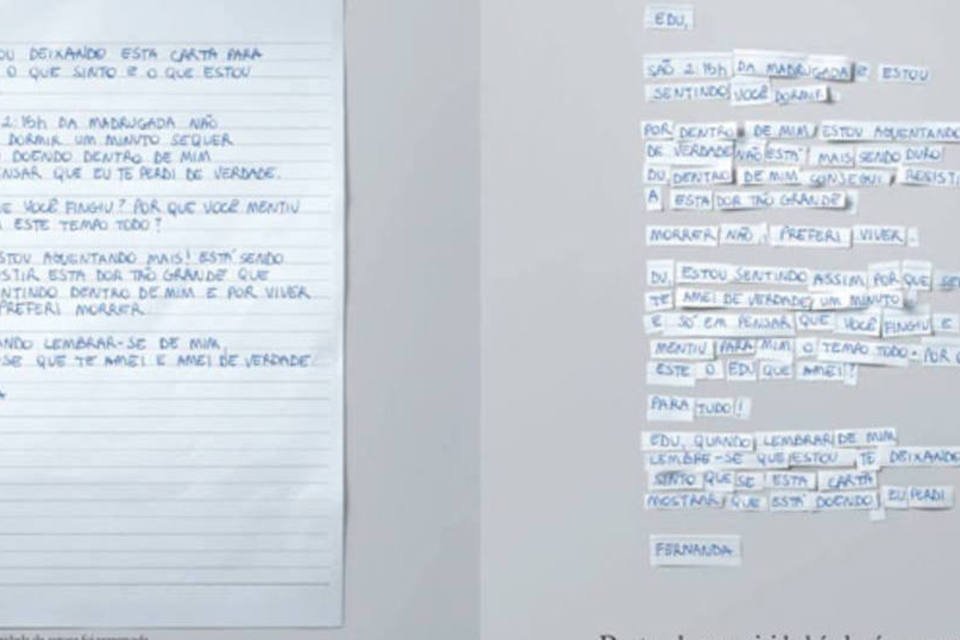 OU DEIXANDO ESTA CARTA PARA
O QUE SINTO E O QUE ESTOU
2:15h DA MADRUGADA NÃO
DORMIR UM MINUTO SEQUER
DOENDO DENTRO DE MIM
NSAR QUE EU TE PERDI DE VERDADE.
E VOCÊ FINGIU? POR QUE VOCÊ MENTIU
M ESTE TEMPO TODO?
STOU AGUENTANDO MAIS! ESTÁ SENDO
ISTIR ESTA DOR TÃO GRANDE QUE
NTINDO DENTRO DE MIM E POR VIVER
PREFERI MORRER.
ANDO LEMBRAR-SE DE MIM,
-SE QUE TE AMEI E AMEI DE VERDADE.
A
EDU,
SÃO 2:15h DA MADRUGADA E ESTOU
SENTINDO VOCÊ DORMIR.
POR DENTRO DE MIM ESTOU AGUENTANDO
DE VERDADE NÃO ESTÁ MAIS SENDO DURO
DU, DENTRO DE MIM CONSEGUI RESISTI
A ESTA DOR TÃO GRANDE.
MORRER NÃO, PREFERI VIVER.
DU, ESTOU SENTINDO ASSIM, POR QUE SE
TE AMEI DE VERDADE UM MINUTO
E SÓ EM PENSAR QUE VOCÊ FINGIU E
MENTIU PARA MIM O TEMPO TODO. POR Q
ESTE O EDU QUE AMEI?
PARA TUDO!
EDU, QUANDO LEMBRAR DE MIM
LEMBRE-SE QUE ESTOU TE DEIXANDO
SINTO QUE SE ESTA CARTA
MOSTRAR QUE ESTÁ DOENDO, EU PERDI
FERNANDA